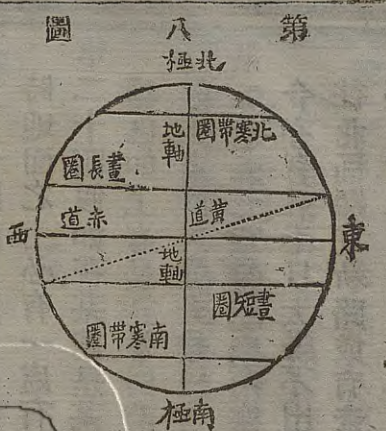 第八圖
北極
地軸
北寒帶圈
晝長圈
赤道
黃道
東
西
地軸
晝短圈
南寒帶圈
南極